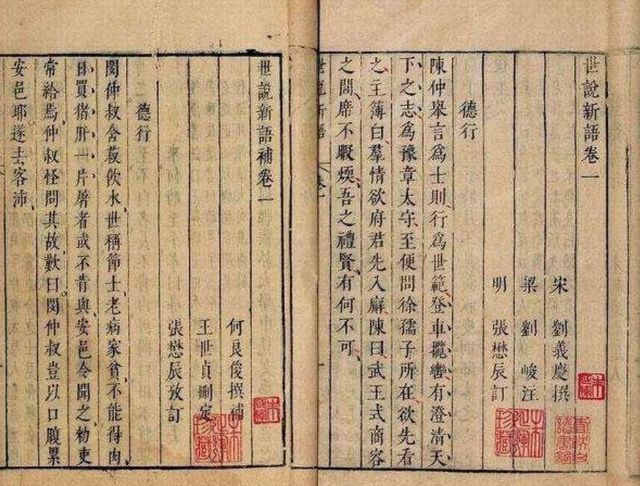 世說新語卷一
宋 劉義慶撰
梁 劉峻注
明 張懋辰訂
德行
陳仲舉言為士則行為世範登車攬轡有澄清天
下之志為豫章太守至便問徐孺子所在欲先看
之主簿白羣情欲府君先入廨陳曰武王式商容
之閭席不暇煖吾之禮賢有何不可
世說新語
卷一
世說新語補卷一
何良俊撰補
王世貞刪定
張懋辰攷訂
德行
閔仲叔含菽飲水世稱節士老病家貧不能得肉
日買猪肝一片屠者或不肯與安邑令聞之勑吏
常給焉仲叔怪問其故歎曰閔仲叔豈以口腹累
安邑耶遂去客沛